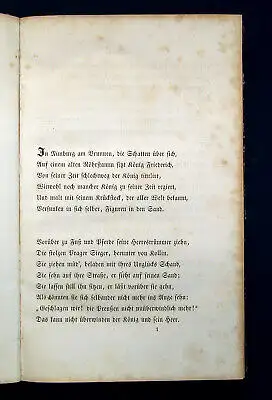 In Nimburg am Brunnen, die Schatten über sich,
Auf einem alten Röhrstamm sitzt König Friederich,
Von seiner Zeit schlechtweg der König titulirt,
Wiewohl noch mancher König zu seiner Zeit regiert,
Und malt mit seinem Krückstock, der aller Welt bekannt,
Versunken in sich selber, Figuren in den Sand.
Vorüber zu Fuß und Pferde seine Heerestrümmer ziehn,
Die stolzen Prager Sieger, herunter von Kollin.
Sie ziehen müd', beladen mit ihres Unglücks Schand,
Sie sehn auf ihre Straße, er sieht auf seinen Sand;
Sie lassen still ihn sitzen, er läßt vorüber sie gehn,
Als könnten sie sich selbander nicht mehr ins Auge sehn:
„Geschlagen wir! die Preußen nicht unüberwindlich mehr!“
Das kann nicht überwinden der König und sein Heer.
1